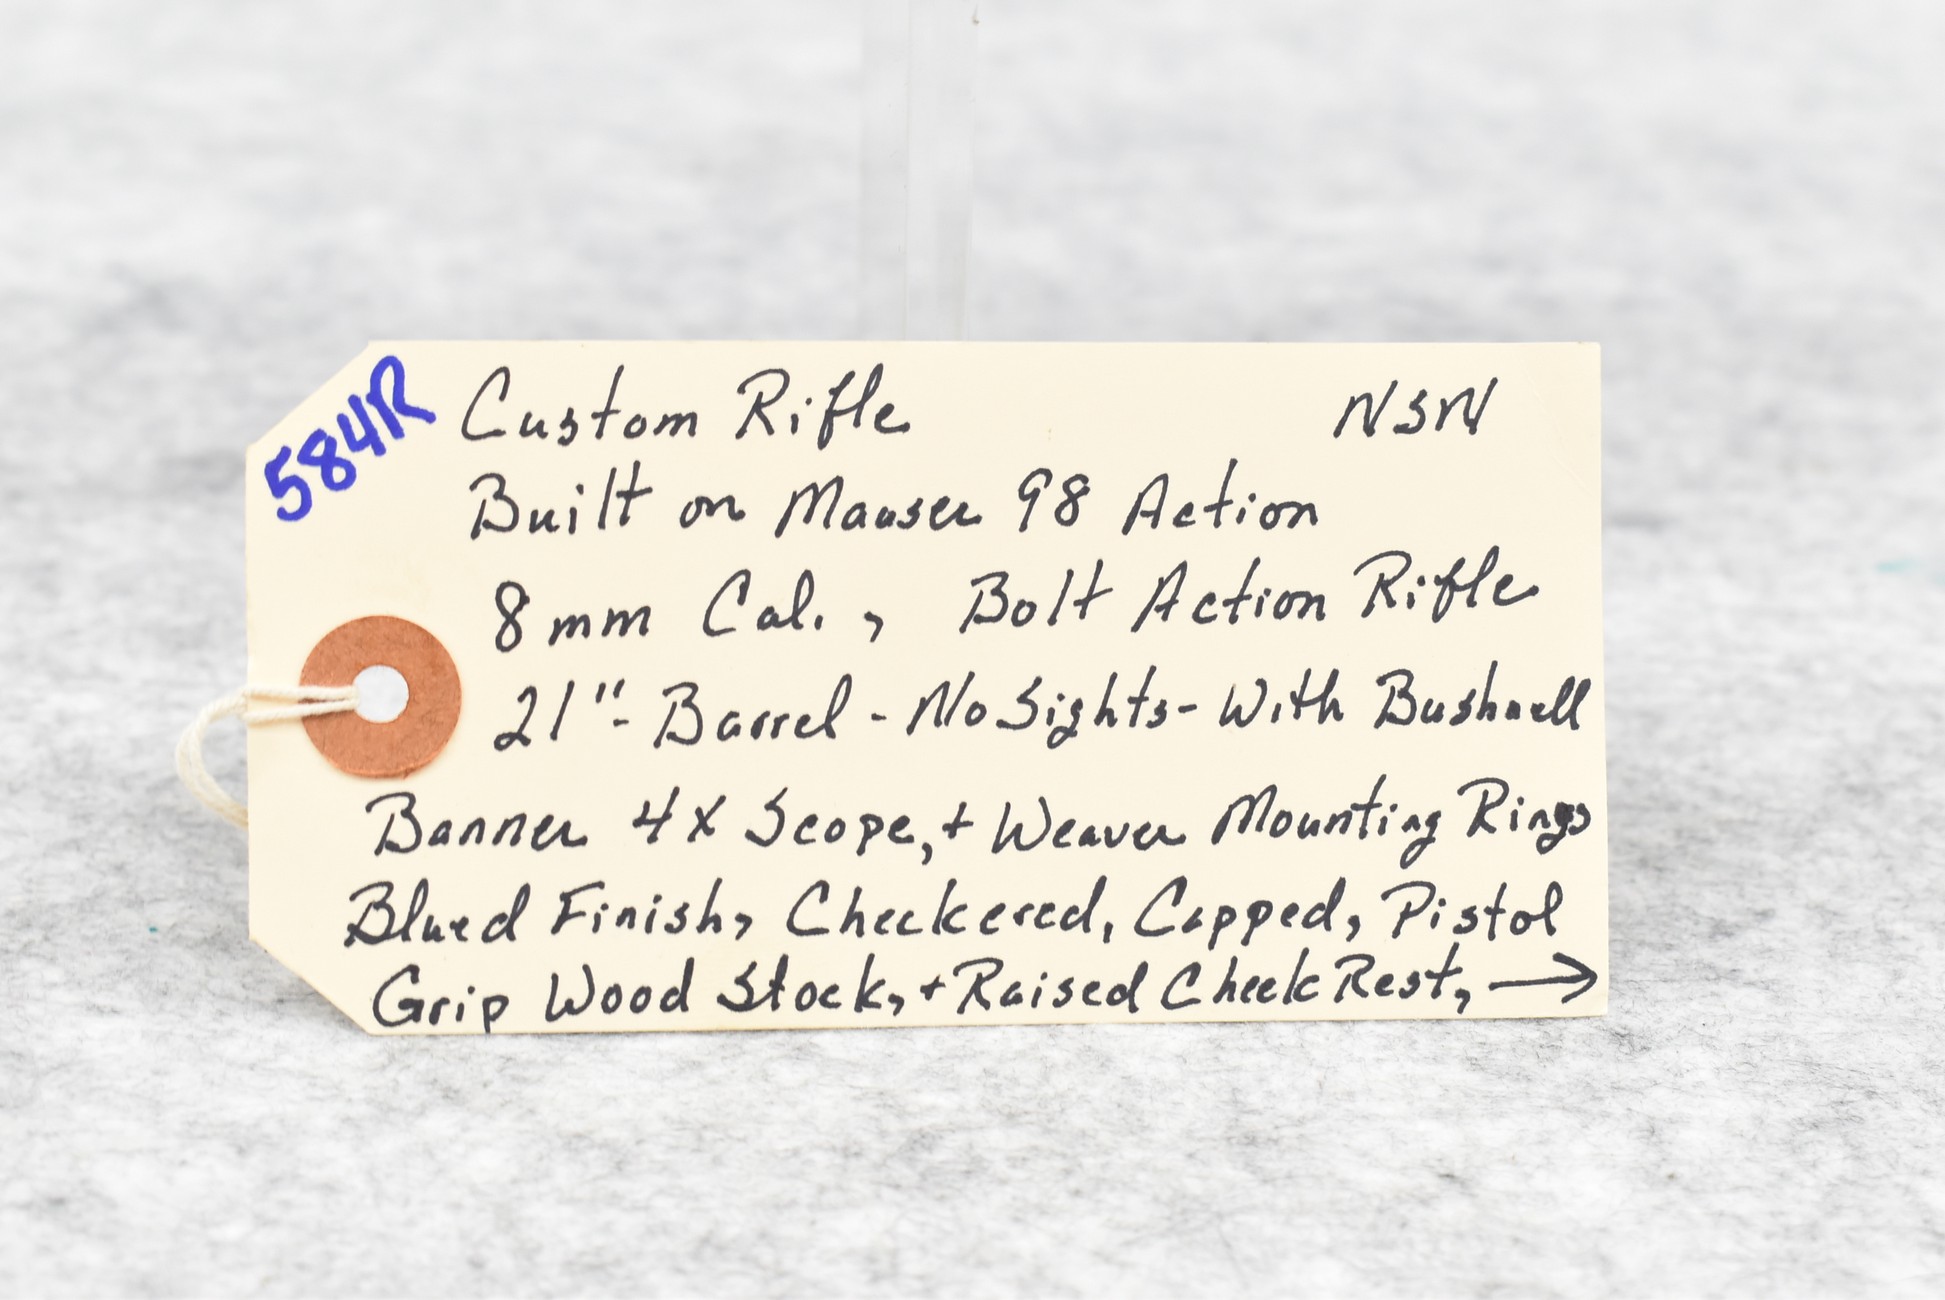 584R
Custom Rifle NSN
Built on Mauser 98 Action
8mm Cal., Bolt Action Rifle
21"- Barrel - No Sights - With Bushnell
Banner 4x Scope, + Weaver Mounting Rings
Blued Finish, Checkered, Capped, Pistol
Grip Wood Stock, + Raised Cheek Rest, →